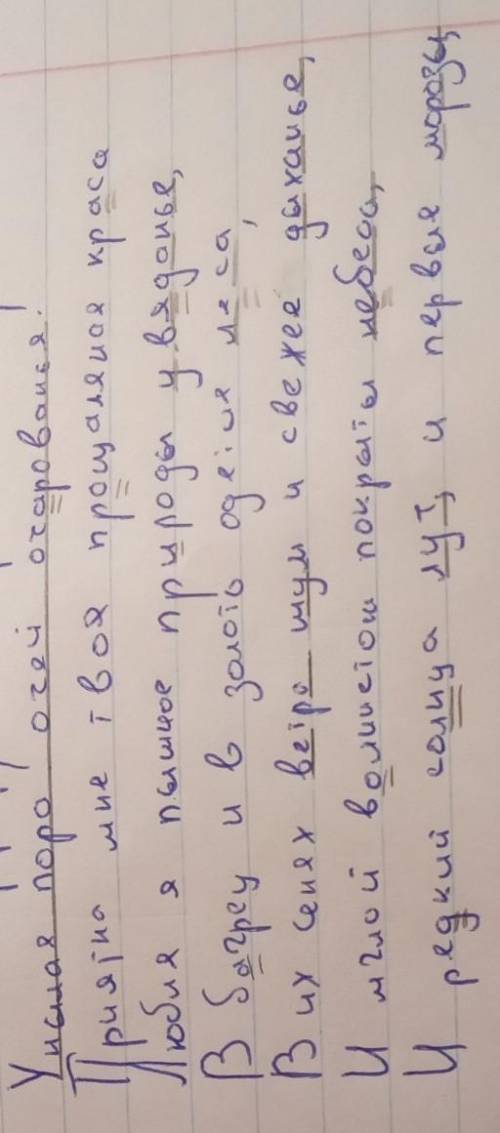 Унылая пора очей очарованья!
Приятна мне твоя прощальная краса
Любля я пышное природы увяданье,
В багрец и в золото одетые леса,
В их сенях ветра шум и свежее дыханье,
И мглой волнистою покрыты небеса,
И редкий солнца луч, и первые морозы,